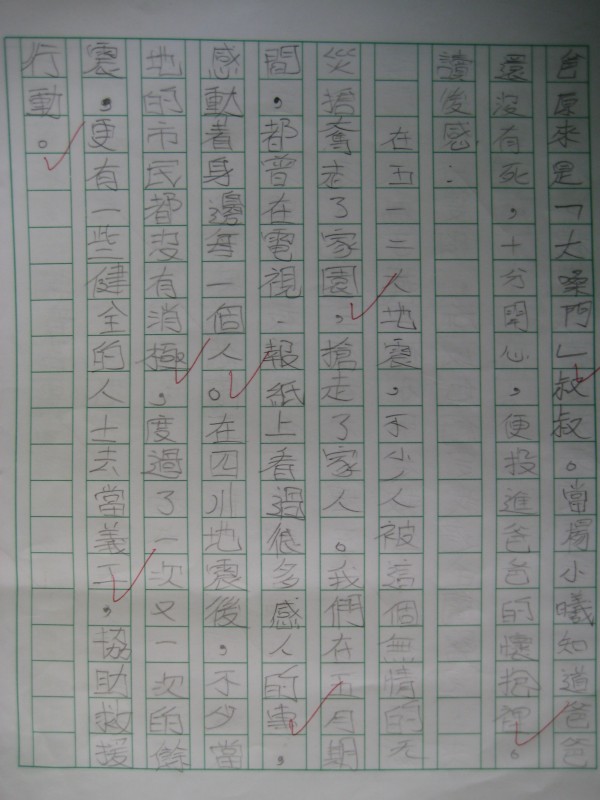 爸原來是「大嗓門」叔叔。當楊小曦知道爸爸
還沒有死，十分開心，便投進爸爸的懷抱裡。
讀後感：
在五一二大地震，不少人被這個無情的天
災搶奪走了家園，搶走了家人。我們在五月期
間，都曾在電視、報紙上看過很多感人的事，
感動着身邊每一個人。在四川地震後，不少當
地的市民都沒有消極，度過了一次又一次的餘
震，更有一些健全的人士去當義工，協助救援
行動。